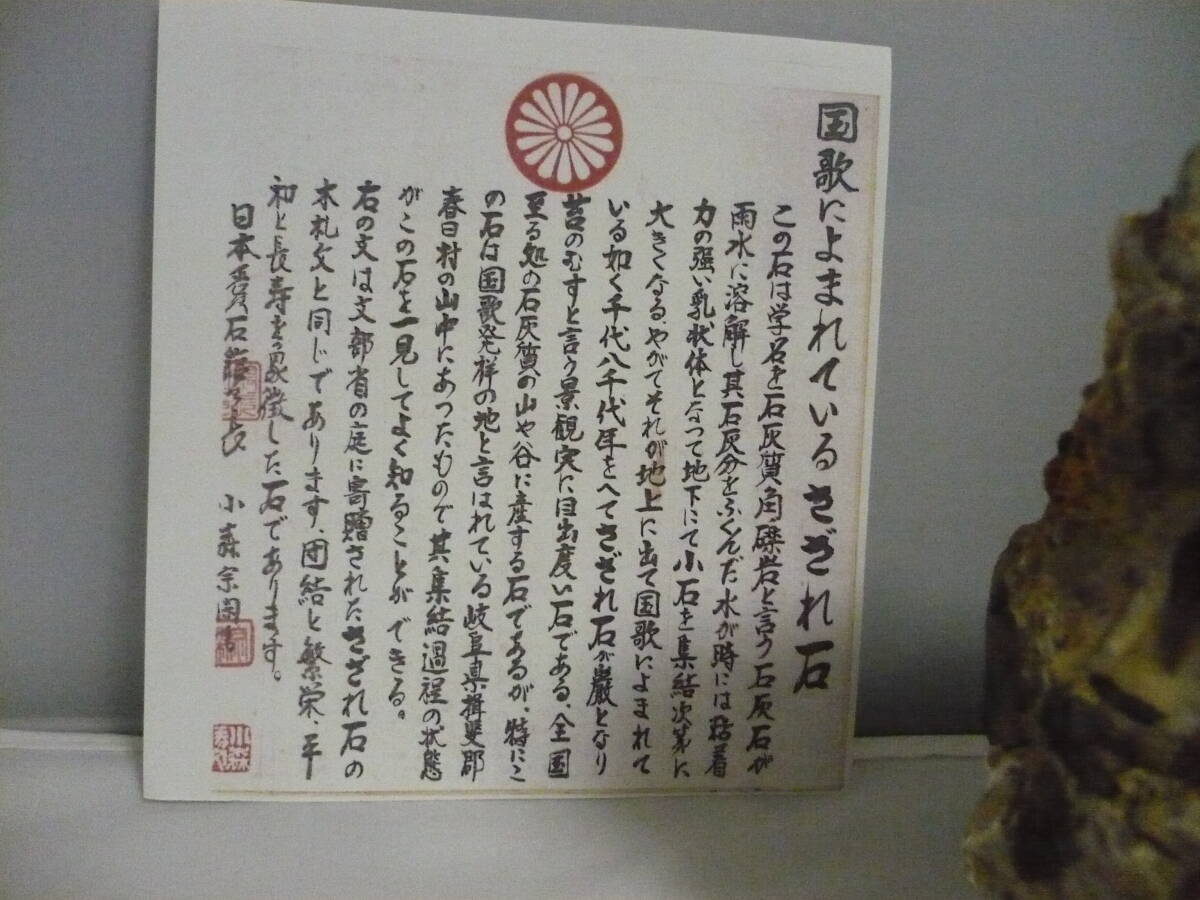 国歌によまれているさざれ石
この石は学名を石灰質角礫岩と言う石灰石が
雨水に溶解し其石灰分をふくんだ水が時には粘着
力の強い乳状体となって地下にて小石を集結次第に
大きくなる、やがてそれが地上に出て国歌によまれて
いる如く千代八千代年をへてさざれ石が巌となり
苔のむすと言う景観実に目出度い石である、全国
至る処の石灰質の山や谷に産する石であるが、特にこ
の石は国歌発祥の地と言はれている岐阜県揖斐郡
春日村の山中にあったもので其集結過程の状態
がこの石を一見してよく知ることができる。
右の文は文部省の庭に寄贈されたさざれ石の
木札文と同じであります、団結と繁栄・平
和と長寿を象徴した石であります。
日本愛石 長 小森宗 書
小森